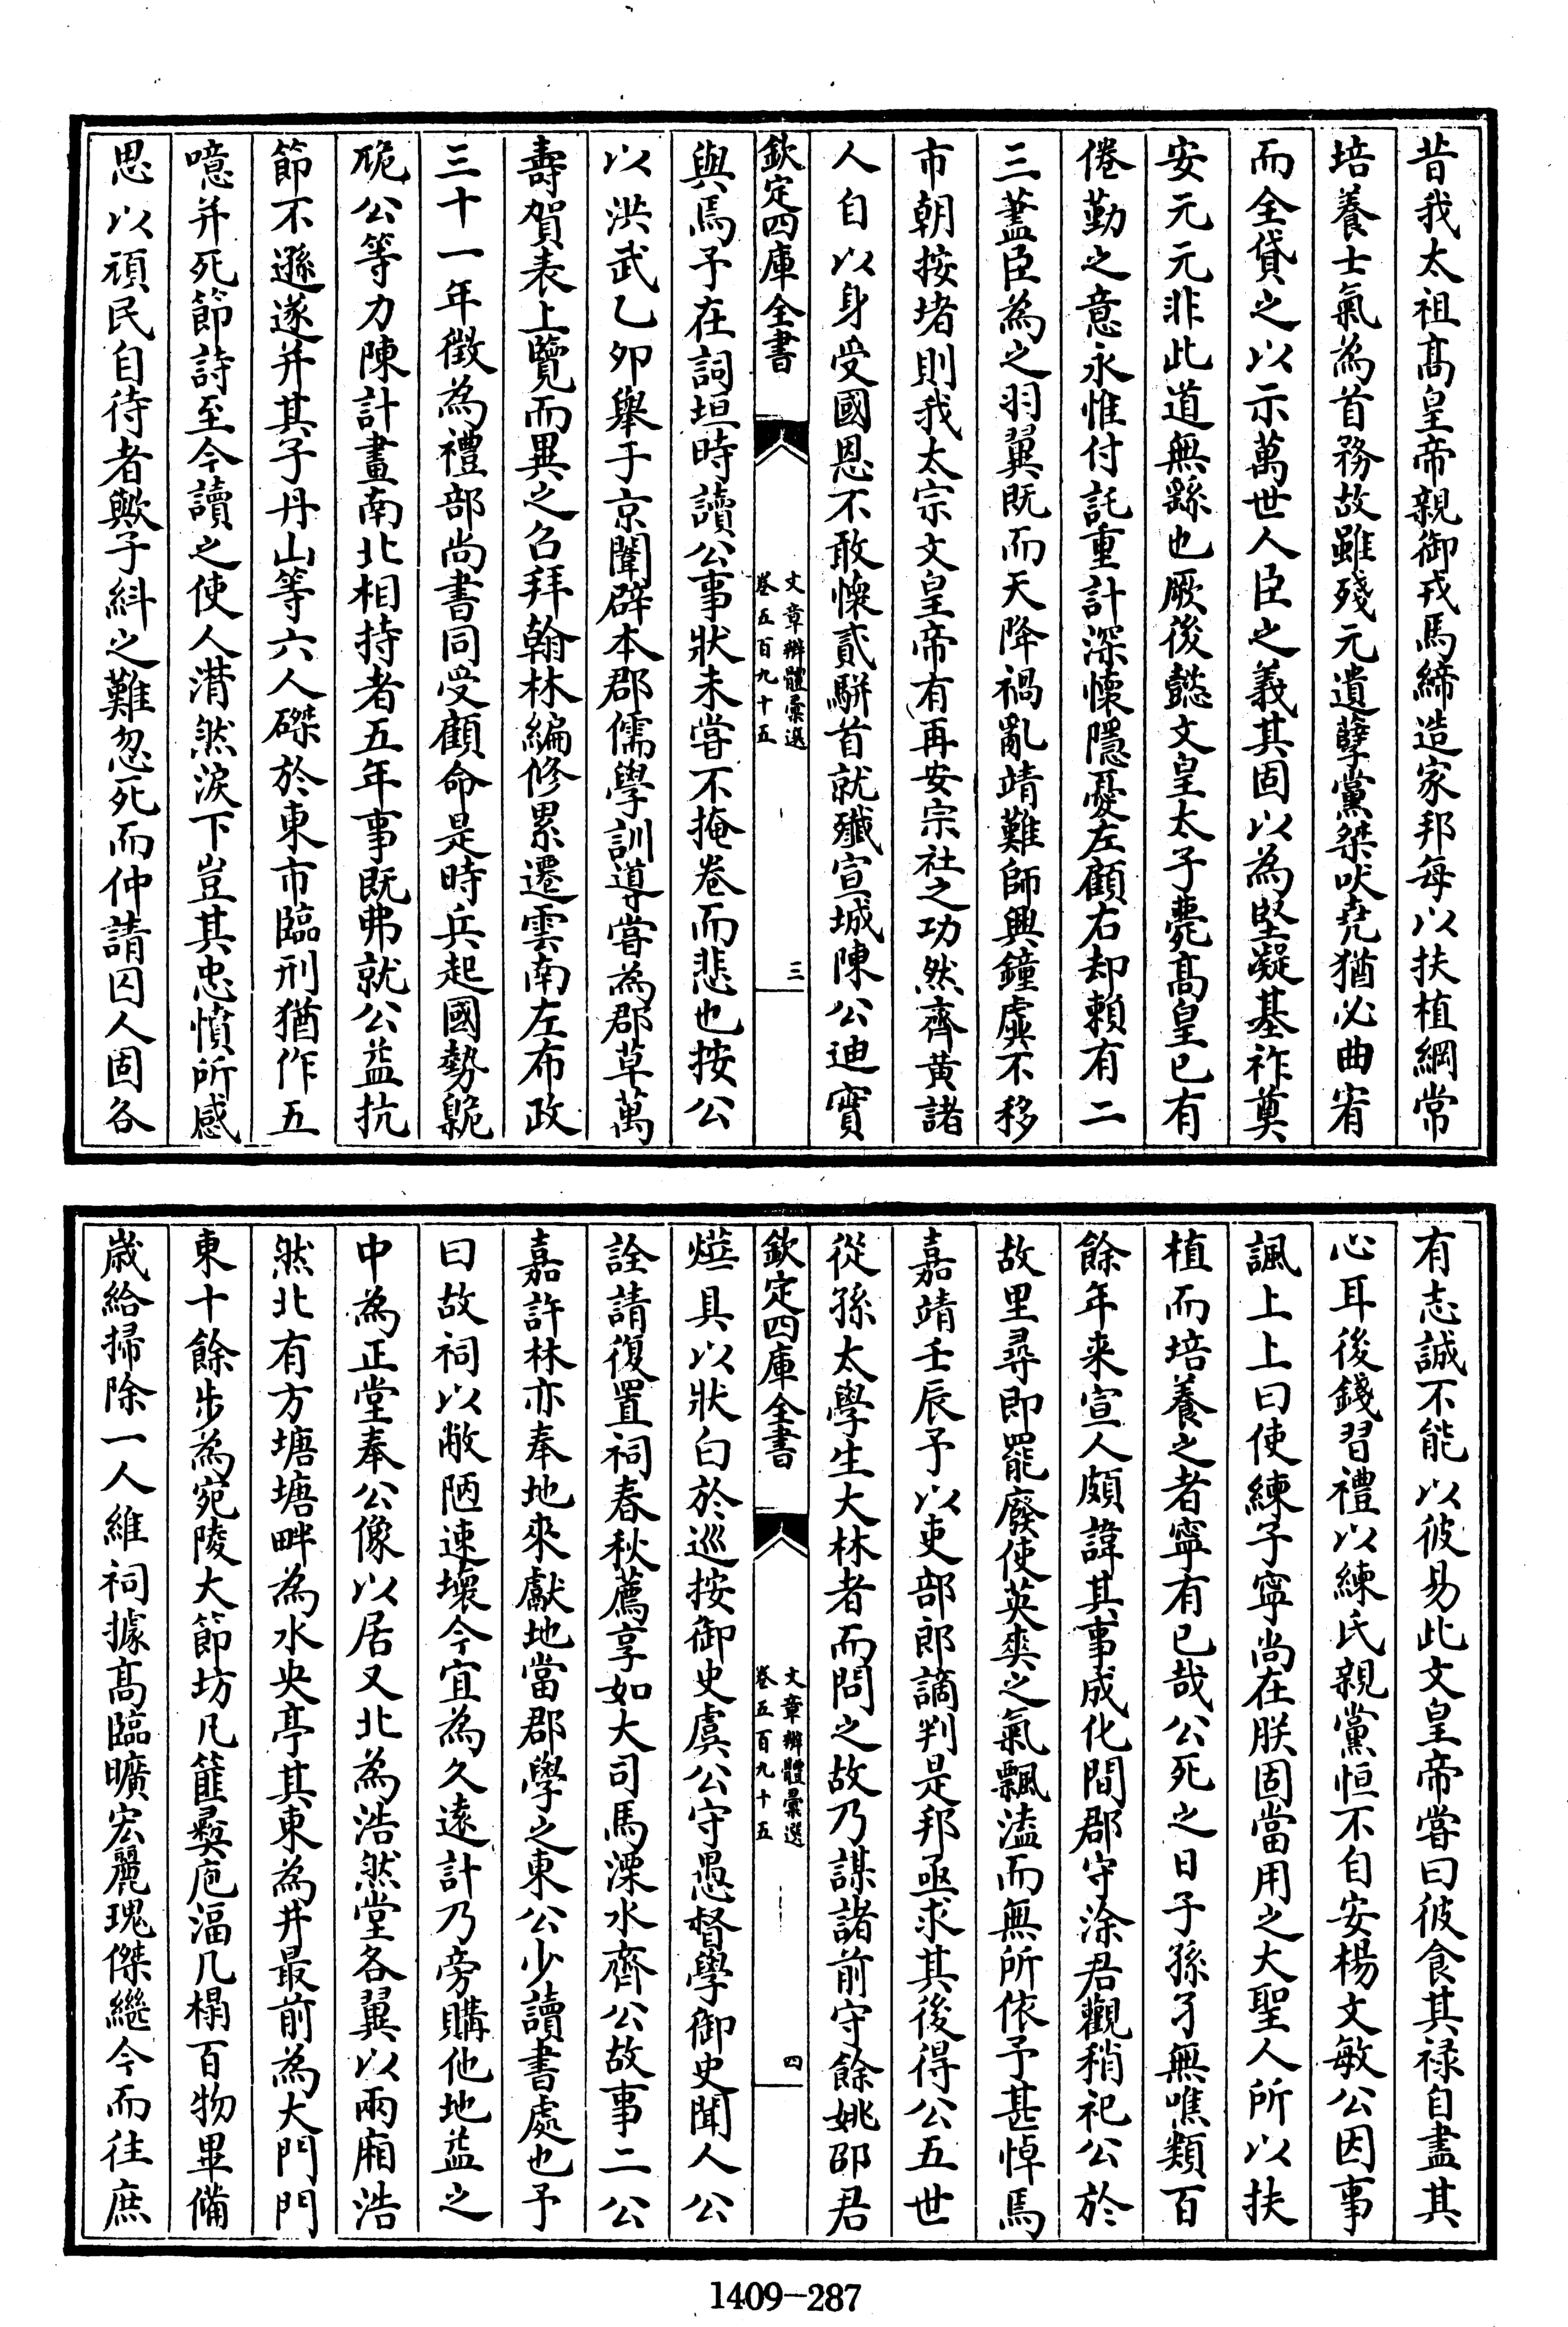 昔我太祖髙皇帝親御戎馬締造家邦每以扶植綱常
培養士氣為首務故雖殘元遺孽黨桀吠堯猶必曲宥
而全貸之以示萬世人臣之義其固以為堅凝基祚奠
安元元非此道無繇也厥後懿文皇太子薨髙皇已有
倦勤之意永惟付託重計深懷隱憂左顧右却賴有二
三藎臣為之羽翼既而天降禍亂靖難師興鐘虡不移
市朝按堵則我太宗文皇帝有再安宗社之功然齊黄諸
人自以身受國恩不敢懷貳駢首就殲宣城陳公迪實
欽定四庫全書
文章辨體彙選
卷五百九十五
三
與焉予在詞垣時讀公事狀未嘗不掩卷而悲也按公
以洪武乙夘舉于京闈辟本郡儒學訓導嘗為郡草萬
壽賀表上覽而異之召拜翰林編修累遷雲南左布政
三十一年徵為禮部尚書同受顧命是時兵起國勢臲
卼公等力陳計畫南北相持者五年事既弗就公益抗
節不遜遂并其子丹山等六人磔於東市臨刑猶作五
噫并死節詩至今讀之使人潸然淚下豈其忠憤所感
思以頑民自待者歟子糾之難忽死而仲請囚人固各
有志誠不能以彼易此文皇帝嘗曰彼食其禄自盡其
心耳後錢習禮以練氏親黨恒不自安楊文敏公因事
諷上上曰使練子寧尚在朕固當用之大聖人所以扶
植而培養之者寧有已哉公死之日子孫孑無噍類百
餘年来宣人頗諱其事成化間郡守涂君觀稍祀公於
故里尋即罷廢使英爽之氣飄溘而無所依予甚悼焉
嘉靖壬辰予以吏部郎謫判是邦亟求其後得公五世
從孫太學生大林者而問之故乃謀諸前守餘姚邵君
欽定四庫全書
文章辨體彙選
卷五百九十五
四
㷼具以狀白於巡按御史虞公守愚督學御史聞人公
詮請復置祠春秋薦享如大司馬溧水齊公故事二公
嘉許林亦奉地來獻地當郡學之東公少讀書處也予
曰故祠以敝陋速壞今宜為久遠計乃旁購他地益之
中為正堂奉公像以居又北為浩然堂各翼以兩廂浩
然北有方塘塘畔為水央亭其東為井最前為大門門
東十餘步為宛陵大節坊凡簠彛庖湢几榻百物畢備
歲給掃除一人維祠據髙臨曠宏麗瑰傑繼今而往庶
1409-287